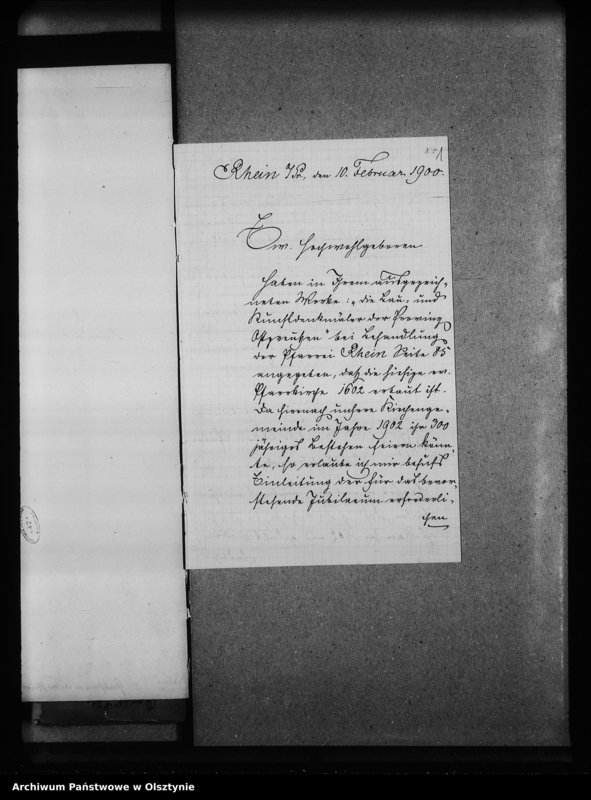 Rhein O/Pr, den 10. Februar 1900.
Ew. Hochwohlgeboren
haben in Ihrem ausgezeich-
neten Werke: „die Bau- und
Kunstdenkmäler der Provinz
Ostpreußen“ bei Behandlung
der Pfarrei Rhein Seite 85
angegeben, daß die hiesige ev.
Pfarrkirche 1602 erbaut ist.
Da hiernach unsere Kirchenge-
meinde im Jahre 1902 ihr 300
jähriges Bestehen feiern könn-
te, so erlaube ich mir behufs
Einleitung der für das bevor-
stehende Jubilaeum erforderli-
chen
Archiwum Państwowe w Olsztynie